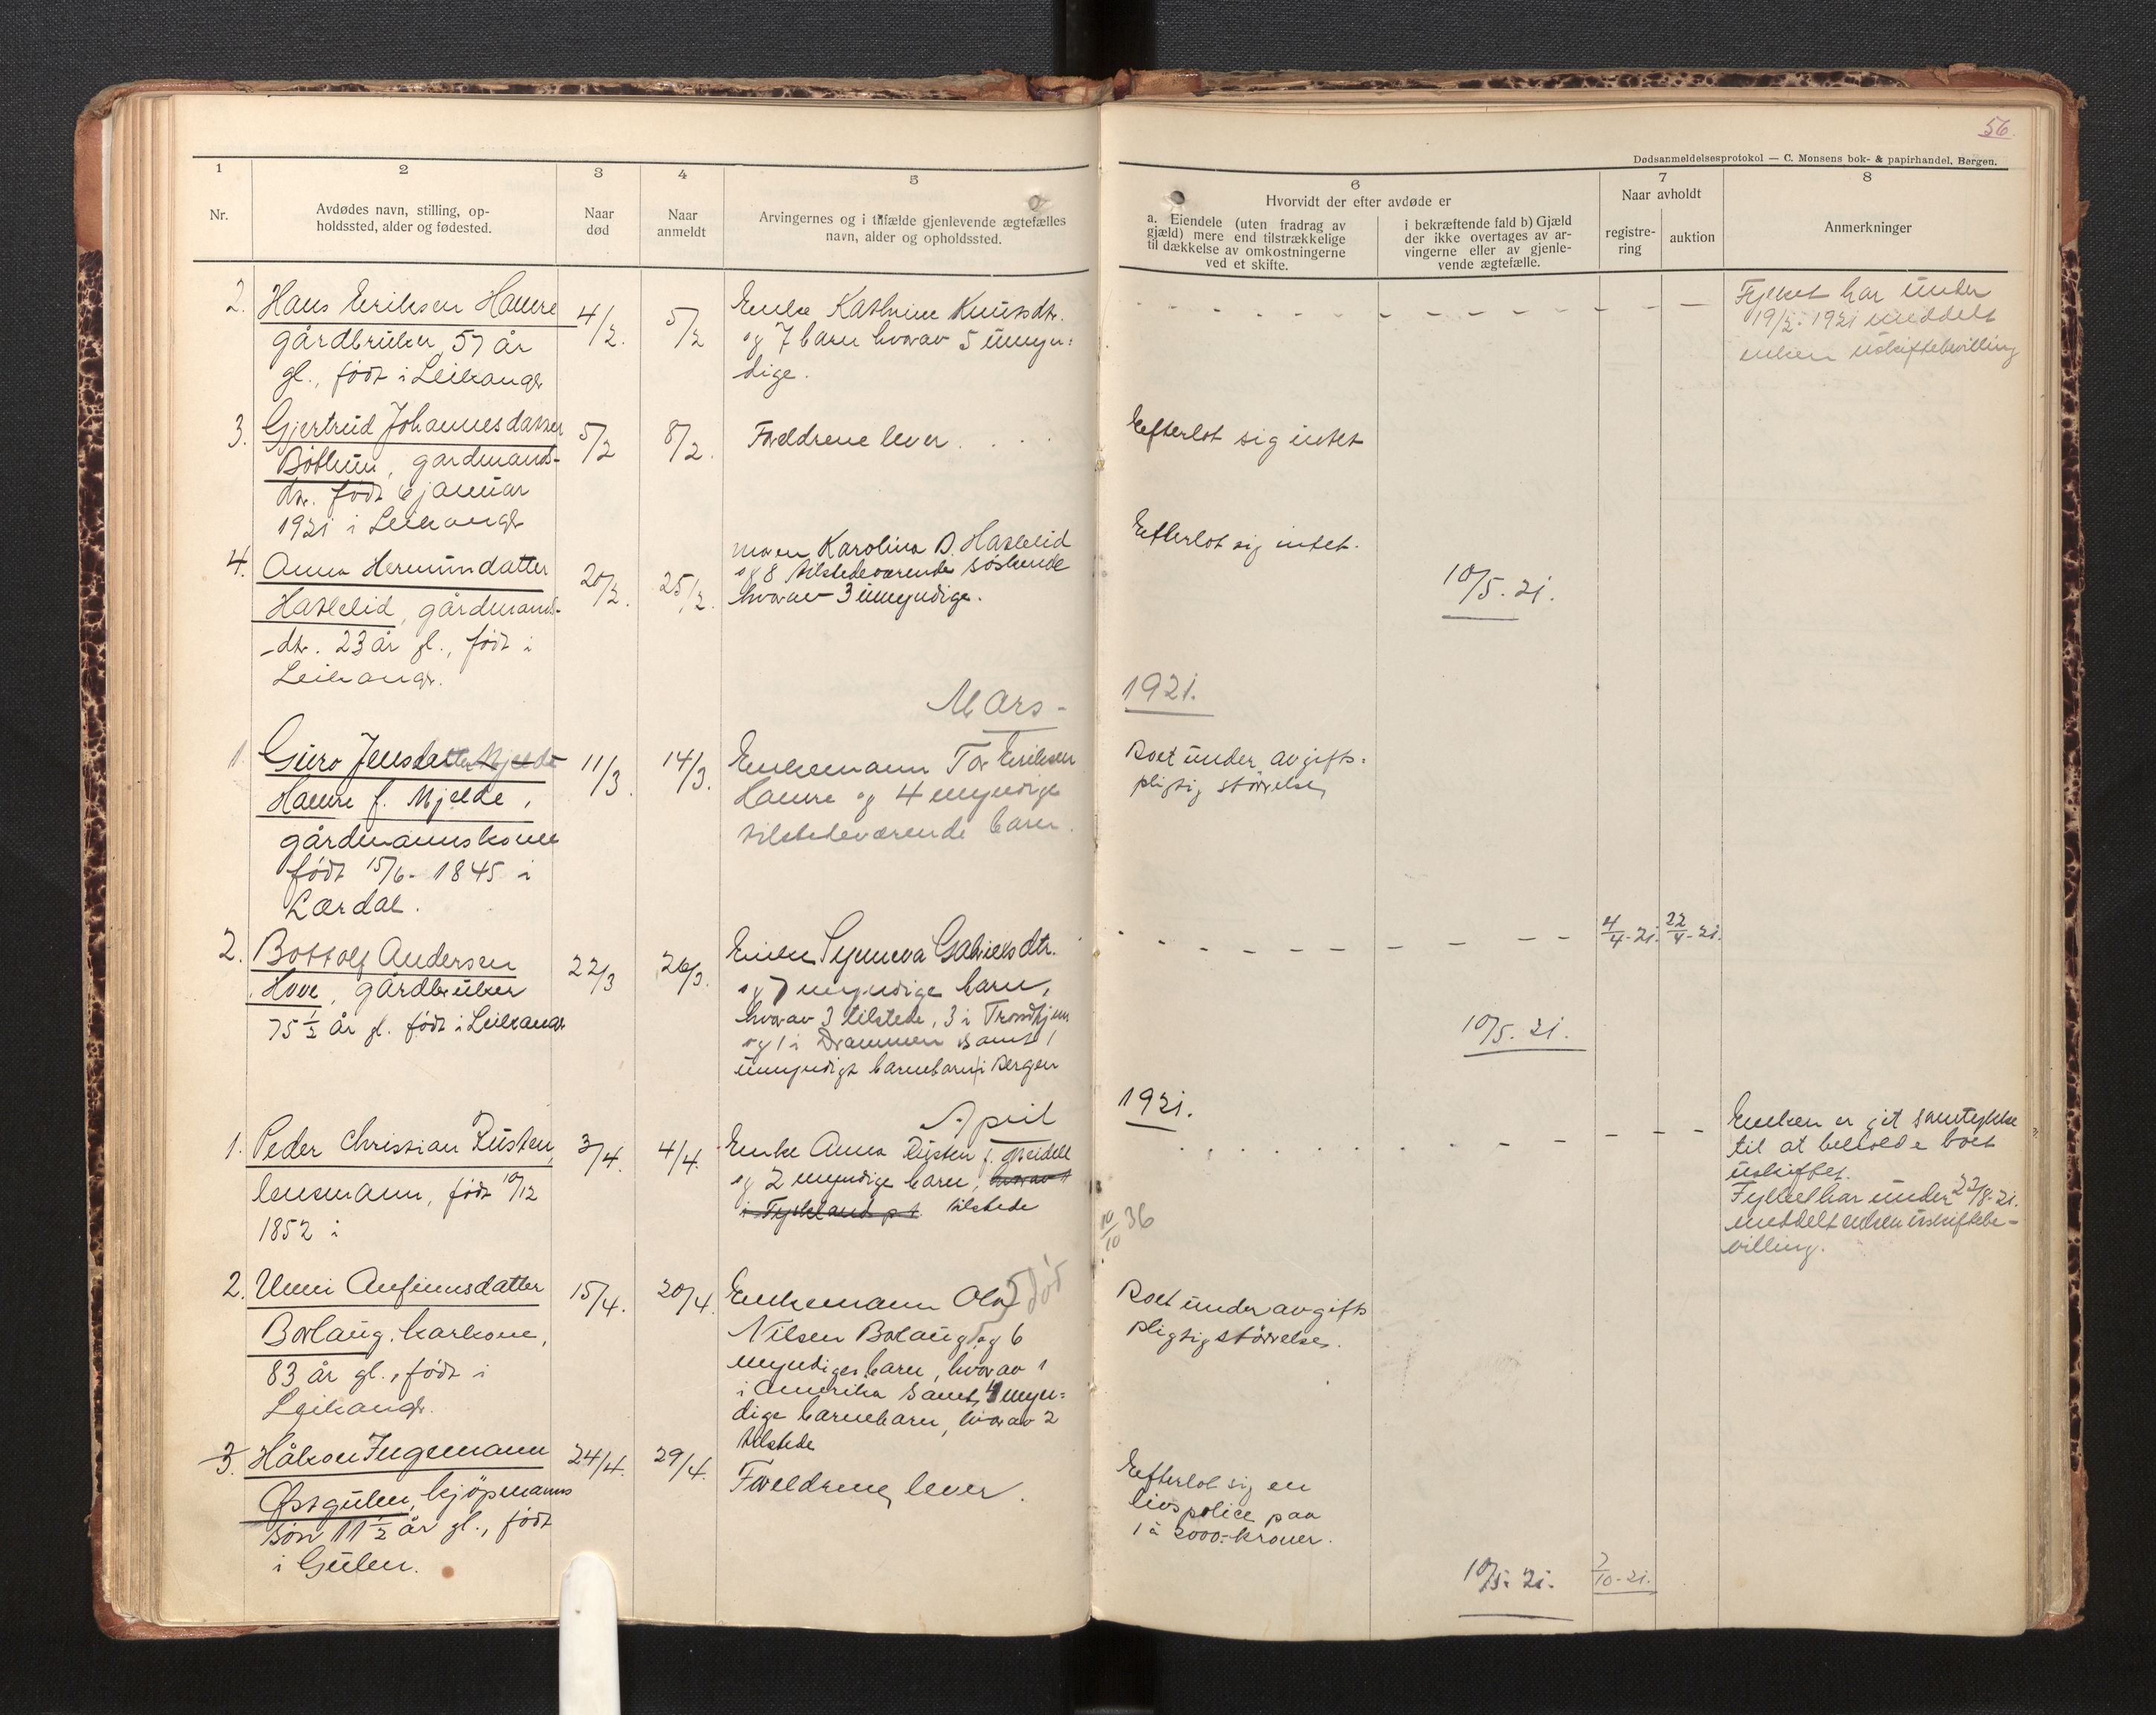 56.
Dødsanmeldelsesprotokol — C. Monsens bok- & papirhandel, Bergen.
1
2
3
4
5
6
7
8
Nr.
Avdødes navn, stilling, op-
holdssted, alder og fødested.
Naar
død
Naar
anmeldt
Arvingernes og i tilfælde gjenlevende ægtefælles
navn, alder og opholdssted.
Hvorvidt der efter avdøde er
a. Eiendele (uten fradrag av
gjæld) mere end tilstrækkelige
til dækkelse av omkostningerne
ved et skifte.
i bekræftende fald b) Gjæld
der ikke overtages av ar-
vingerne eller av gjenle-
vende ægtefælle.
Naar avholdt
registre-
ring
auktion
Anmerkninger
2. Hans Eriksen Hamre
gårdbruker, 57 år
gl., født i Leikangr
4/2.
5/2
Enke Kathrine Knutsdtr.
og 7 barn hvorav 5 umyn=
dige.
Fylket har under
19/2 - 1921 meddelt
enken uskiftebevilling
3. Gjertrud Johannesdatter
Bøthun, gardmands-
dtr. født 6 januar
1921 i Leikangr
5/2
8/2.
Foreldrene lever . . .
Efterlot sig intet
4. Anna Hermundatter
Hatlelid, gårdmands-
-dtr. 23 år gl., født i
Leikangr.
20/2.
25/2.
moren Karolina D. Hatlelid
og 8 tilstedeværende søskende
hvorav 3 umyndige.
Efterlot sig intet.
10/5. 21.
Mars -
1921.
1. Guro Jensdatter Mjelde
Hamre f. Mjelde,
gårdmannskone
født 15/6 - 1845 i
Lærdal.
11/3.
14/3.
Enkemann Tor Eriksen
Hamre og 4 myndige
tilstedeværende barn.
Boet under avgifts=
pligtig størrelse,
2. Bottolf Andersen
Hove, gårdbruker
75 1/2 år gl. født i Leikangr
22/3
26/3.
Enken Synneva Gabrielsdtr.
og 7 myndige barn,
hvorav 3 tilstede, 3 i Trondhjem
og 1 i Drammen samt 1
umyndigt barnebarn i Bergen
4/4-21.
22/4-21.
10/5. 21.
April
1921.
1. Peder Christian Rusten,
lensmann, født 10/12
1852 i
3/4.
4/4.
Enke Anna Rusten f.
og 2 myndige barn, hvorav 1
i Tyskland p.t. tilstede
10/10 36
Enken er git samtykke
til at beholde boet
uskiftet.
Fylket har under 22/8-21.
meddelt enken uskiftebe-
villing.
2. Unni Anfinnsdatter
Borlaug, karkone,
83 år gl., født i
Leikangr.
15/4.
20/4.
Enkemann Ola død
Nilsen Borlaug og 6
myndige barn, hvorav 1
i Amerika samt 4 myn=
dige barnebarn, hvorav 2
tilstede
Boet under avgifts
pligtig størrelse.
3. Håkon Ingemann
Østgulen, kjøpmanns
søn 11 1/2 år gl., født
i Gulen.
24/4.
29/4.
Foreldrene lever.
Efterlot sig en
livspolice paa
1 à 2000.- kroner.
10/5. 21.
7/10-21.